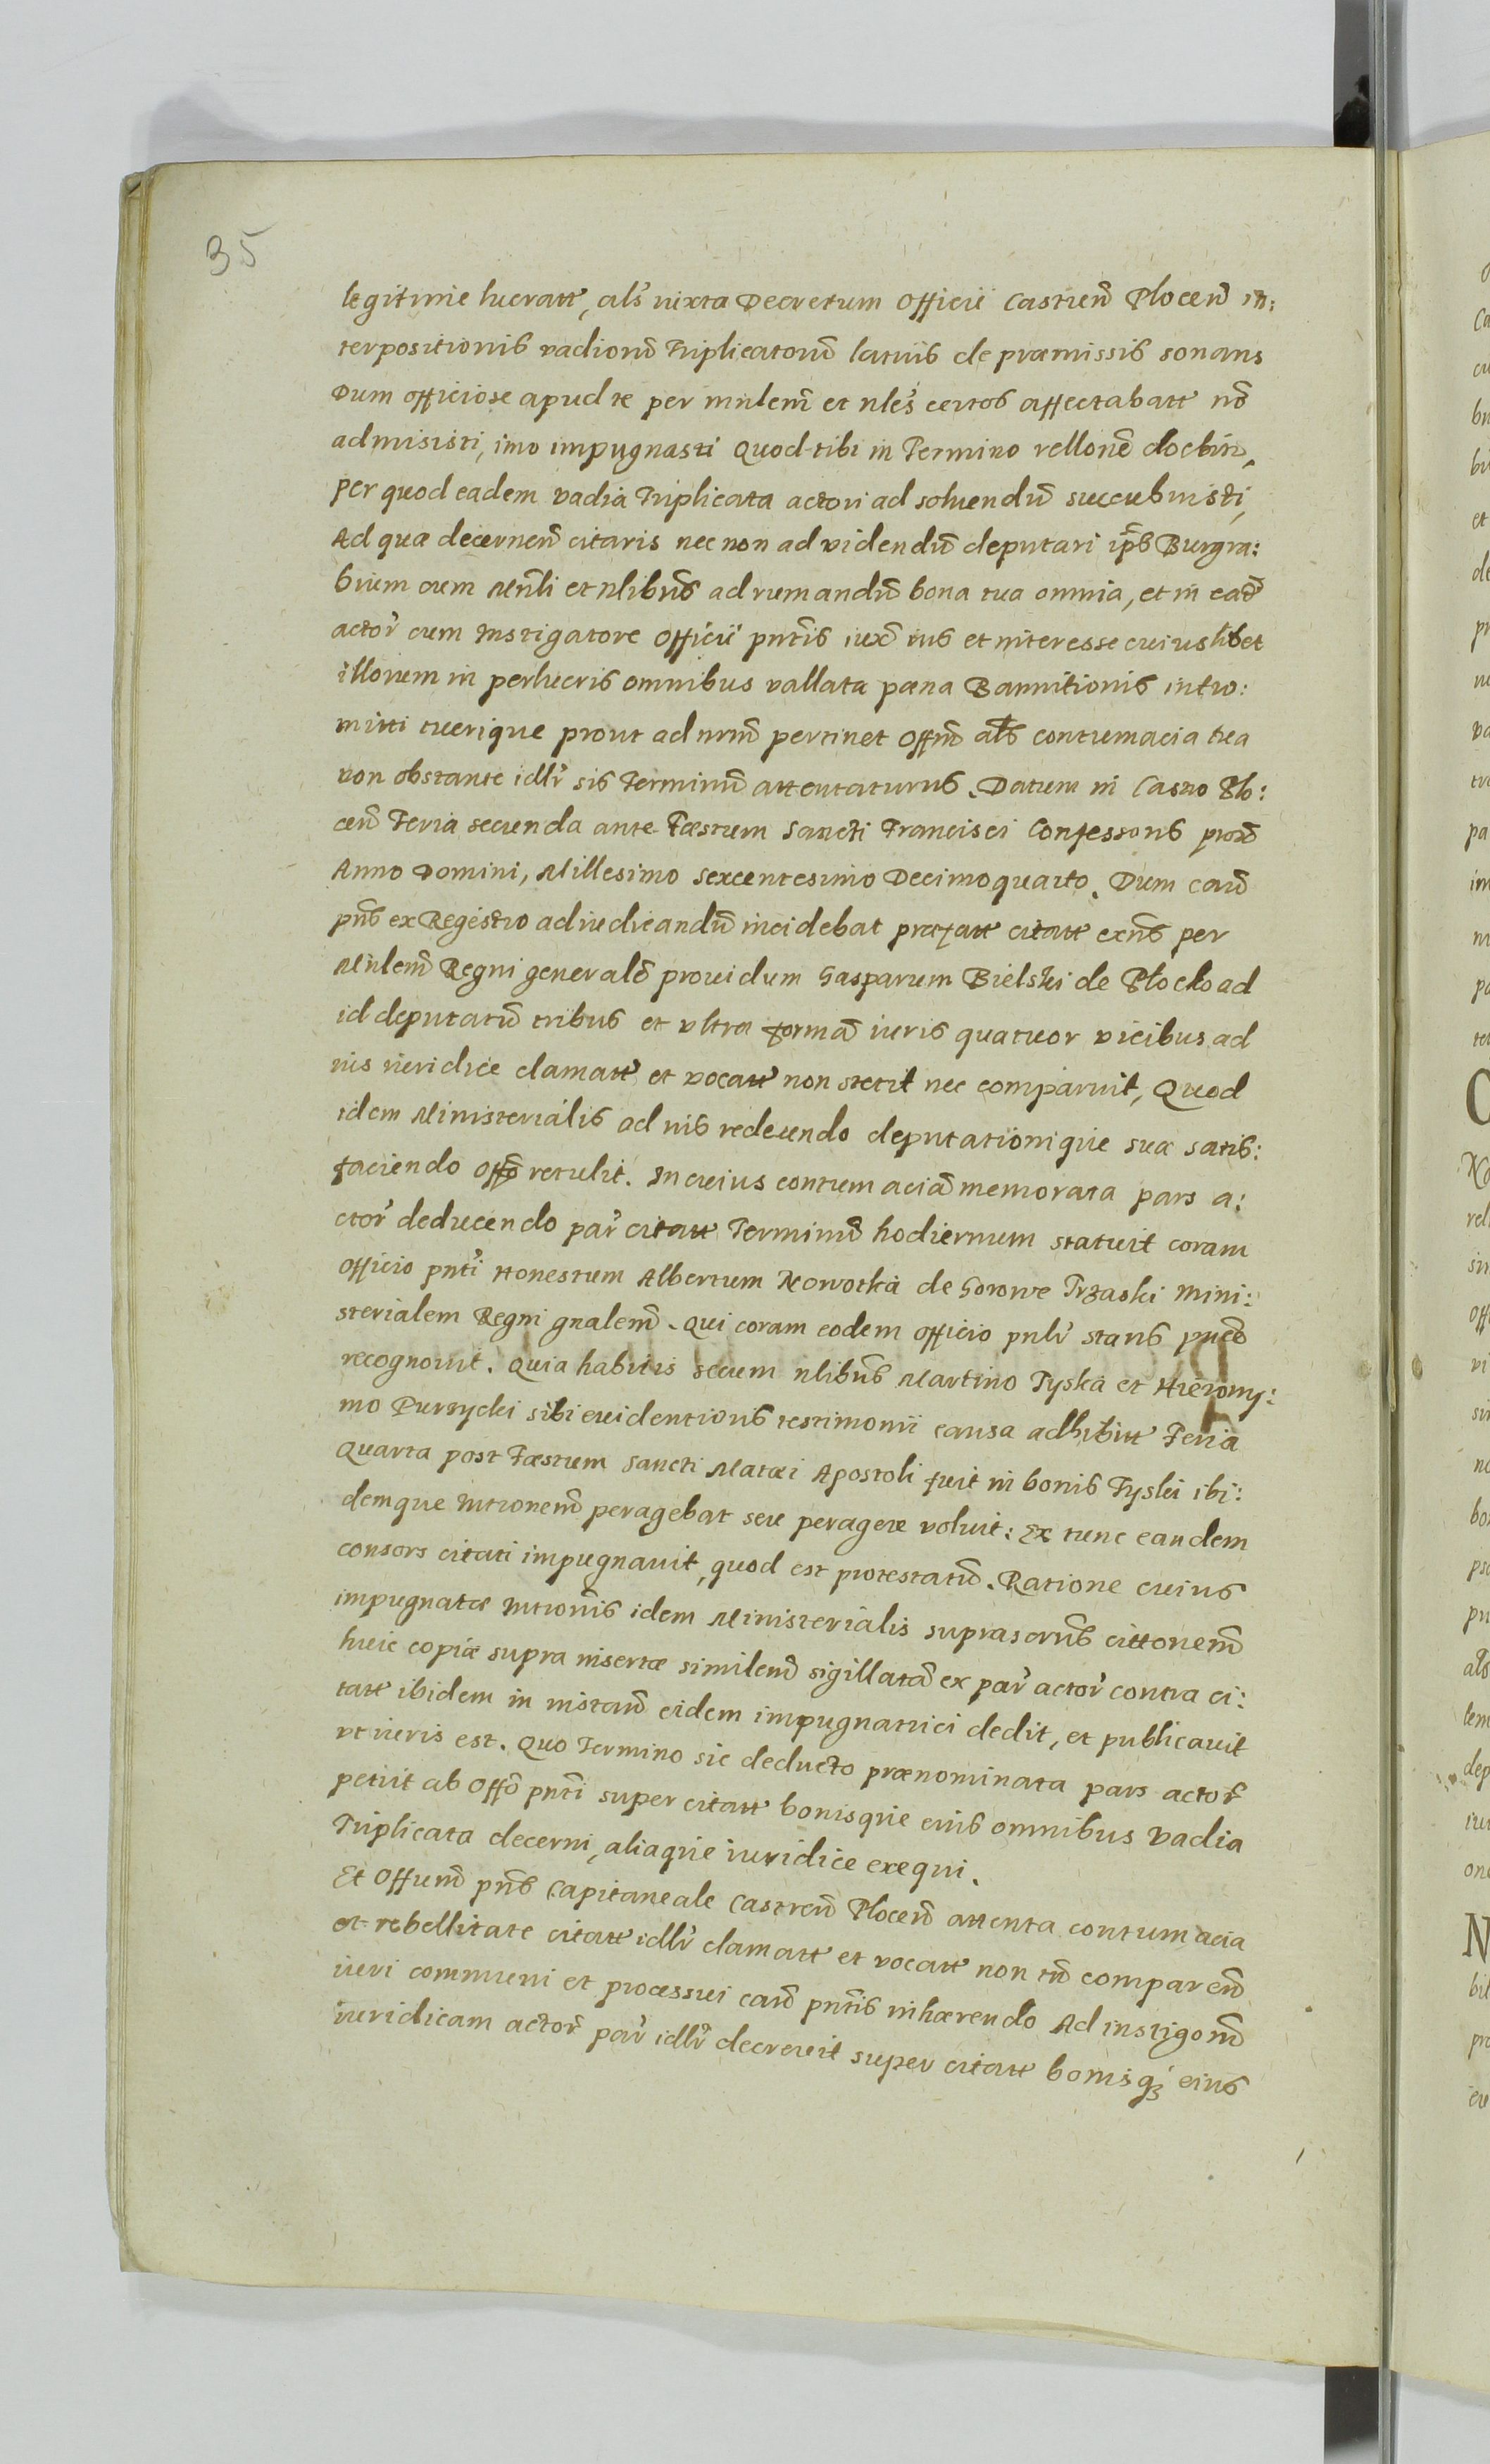 35
legitime lucratt, als iuxta Decretum Officii Castren Plocen in:
terpositionis vadiorū Triplicatorū latius de præmissis sonans
Dum officiose apud te per mnlem et nles certos affectabatt nō
admisisti, imo impugnasti Quod tibi in Termino rellone docbitr,
per quod eadem vadia Triplicata actori ad soluendū succubuisti,
Ad quæ decernen citaris nec non ad videndū deputari ipsb Burgra:
bium cum Mnli et nlibus ad rumandū bona tua omnia, et in ead
actor cum Instigatore Officii pntis iux ius et interesse cuiuslibet
illorum in perlucris omnibus vallata pœna Bannitionis intro:
mitti tuerique prout ad nrm pertinet Offm als contumacia tua
non obstante idlr sis Terminū attentaturus. Datum in Castro Plo:
cen Feria secunda ante Fæstum Sancti Francisci Confessoris prox
Anno Domini, Millesimo sexcentesimo Decimoquarto. Dum causa
pns ex Regestro adiudicandū incidebat præfatt citatt exns per
Mnlem Regni general prouidum Gasparum Bielski de Płocko ad
id deputatū tribus et vltra formā iuris quatuor vicibus ad
ius iuridice clamatt et vocatt non stetit nec comparuit, Quod
idem Ministerialis ad ius redeundo deputationique suæ satis:
faciendo offō retulit. In cuius contumaciā memorata pars a:
ctor deducendo par citatt Terminū hodiernum statuit coram
officio pnti Honestum Albertum Nowotka de Gorowe Trzaski Mini:
sterialem Regni gnalem. Qui coram eodem officio pnlr stans
recognouit. Quia habitis secum nlibus Martino Tyska et Hierony:
mo Purzycki sibi euidentioris testimonii causa adhibitt Feria
Quarta post Fæstum Sancti Matæi Apostoli fuit in bonis Tyski ibi:
demque Intionem peragebat seu peragere voluit: Ex tunc eandem
consors citati impugnauit, quod est protestatū. Ratione cuius
impugnatæ Intionis idem Ministerialis suprascrns cittonem
huic copiæ supra insertæ similem sigillatā ex par actor contra ci:
tatt ibidem in instan eidem impugnatrici dedit, et publicauit
vt iuris est. Quo Termino sic deducto prænominata pars actor
petiit ab Offō pnti super citatt bonisque eius omnibus vadia
Triplicata decerni, aliaque iuridice exequi.
Et Offum pns Capitaneale Castren Plocen attenta contumacia
et rebellitate citatt idlr clamatt et vocatt non tn comparen
iuri communi et processui caus pntis inhærendo Ad instigonm
iuridicam actor par idlr decreuit super citatt bonisq; eius